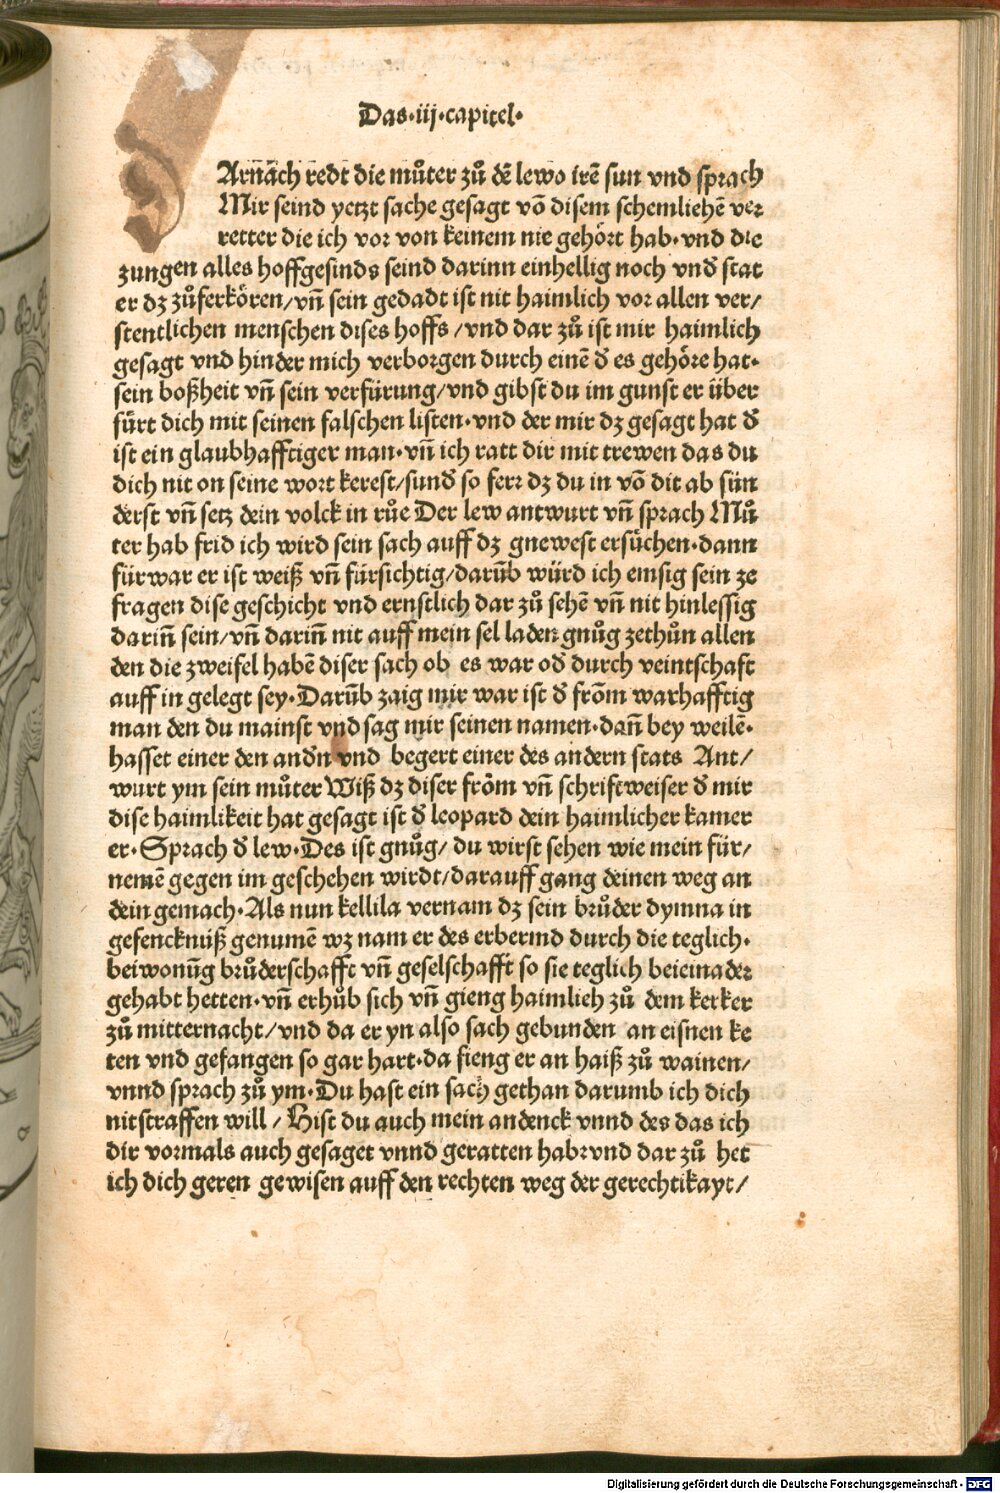 Das·iij·capitel·
DArnāch redt die mu̇ter zu̇ dē lewo irē sun vnd sprach
Mir seind yetzt sache gesagt vō disem schemliehē ver
retter die ich vor von keinem nie gehört hab·vnd die
zungen alles hoffgesinds seind darinn einhellig noch vnđ stat
er dz zůferkören/vn̄ sein gedadt ist nit haimlich vor allen ver/
stentlichen menschen dises hoffs /vnd dar zů ist mir haimlich
gesagt vnd hinder mich verborgen durch einē đ es gehöre hat·
sein boßheit vn̄ sein verfürung/vnd gibst du im gunst er über
fürt dich mit seinen falschen listen·vnd der mir dz gesagt hat đ
ist ein glaubhafftiger man·vn̄ ich ratt dir mit trewen das du
dich nit on seine wort kerest/sunđ so ferr dz du in vō dit ab sün
derst vn̄ setz dein volck in růe Der lew antwurt vn̄ sprach Mů
ter hab frid ich wird sein sach auff dz gnewest ersůchen·dann
fürwar er ist weiß vn̄ fürsichtig/darūb würd ich emsig sein ze
fragen dise geschicht vnd ernstlich dar zů sehē vn̄ nit hinlessig
darin̄ sein/vn̄ darin̄ nit auff mein sel laden gnůg zethůn allen
den die zweifel habē diser sach ob es war ođ durch veintschaft
auff in gelegt sey·Darūb zaig mir war ist đ frōm warhafftig
man den du mainst vnd sag mir seinen namen·dan̄ bey weilē·
hasset einer den anđn vnd begert einer des andern stats Ant/
wurt ym sein můter Wiß dz diser frōm vn̄ schriftweiser đ mir
dise haimlikeit hat gesagt ist đ leopard dein haimlicher kamer
er·Sprach đ lew·Des ist gnůg/ du wirst sehen wie mein für/
nemē gegen im geschehen wirdt/darauff gang deinen weg an
dein gemach·Als nun kellila vernam dz sein brůder dymna in
gefencknüß genumē wz nam er des erbermd durch die teglich·
beiwonūg brůderschafft vn̄ geselschafft so sie teglich beieinader
gehabt hetten·vn̄ erhůb sich vn̄ gieng haimlieh zů dem kerker
zů mitternacht/vnd da er yn also sach gebunden an eisnen ke
ten vnd gefangen so gar hart·da fieng er an haiß zů wainen/
vnnd sprach zů ym·Du hast ein sach gethan darumb ich dich
nitstraffen will / Bist du auch mein andenck vnnd des das ich
dir vormals auch gesaget vnnd geratten hab:vnd dar zů het
ich dich geren gewisen auff den rechten weg der gerechtikayt/
Digitalisierung gefördert durch die Deutsche Forschungsgemeinschaft · DFG